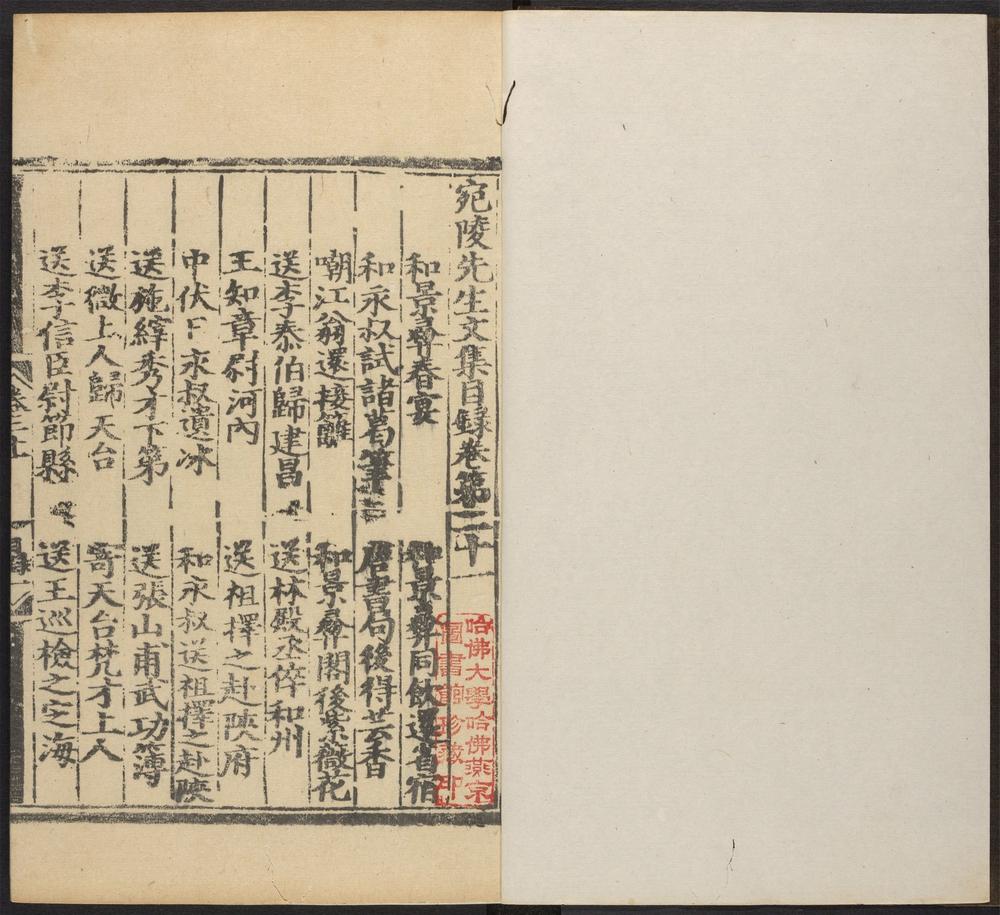 宛陵先生文集目録卷第二十
和景彝春宴
和景彝同飲還省宿
和永叔試諸葛筆
唐書局後得芸香
嘲江翁還接籬
和景彝閣後紫薇花
送李泰伯歸建昌
送林殿丞倅和州
王知章尉河內
送祖擇之赴陝府
中伏日永叔遺冰
和永叔送祖擇之赴陝
送施繹秀才下第
送張山甫武功簿
送微上人歸天台
寄天台梵才上人
送李信臣尉節縣
送王巡檢之定海
哈佛大學哈佛燕京
圖書館珍藏印